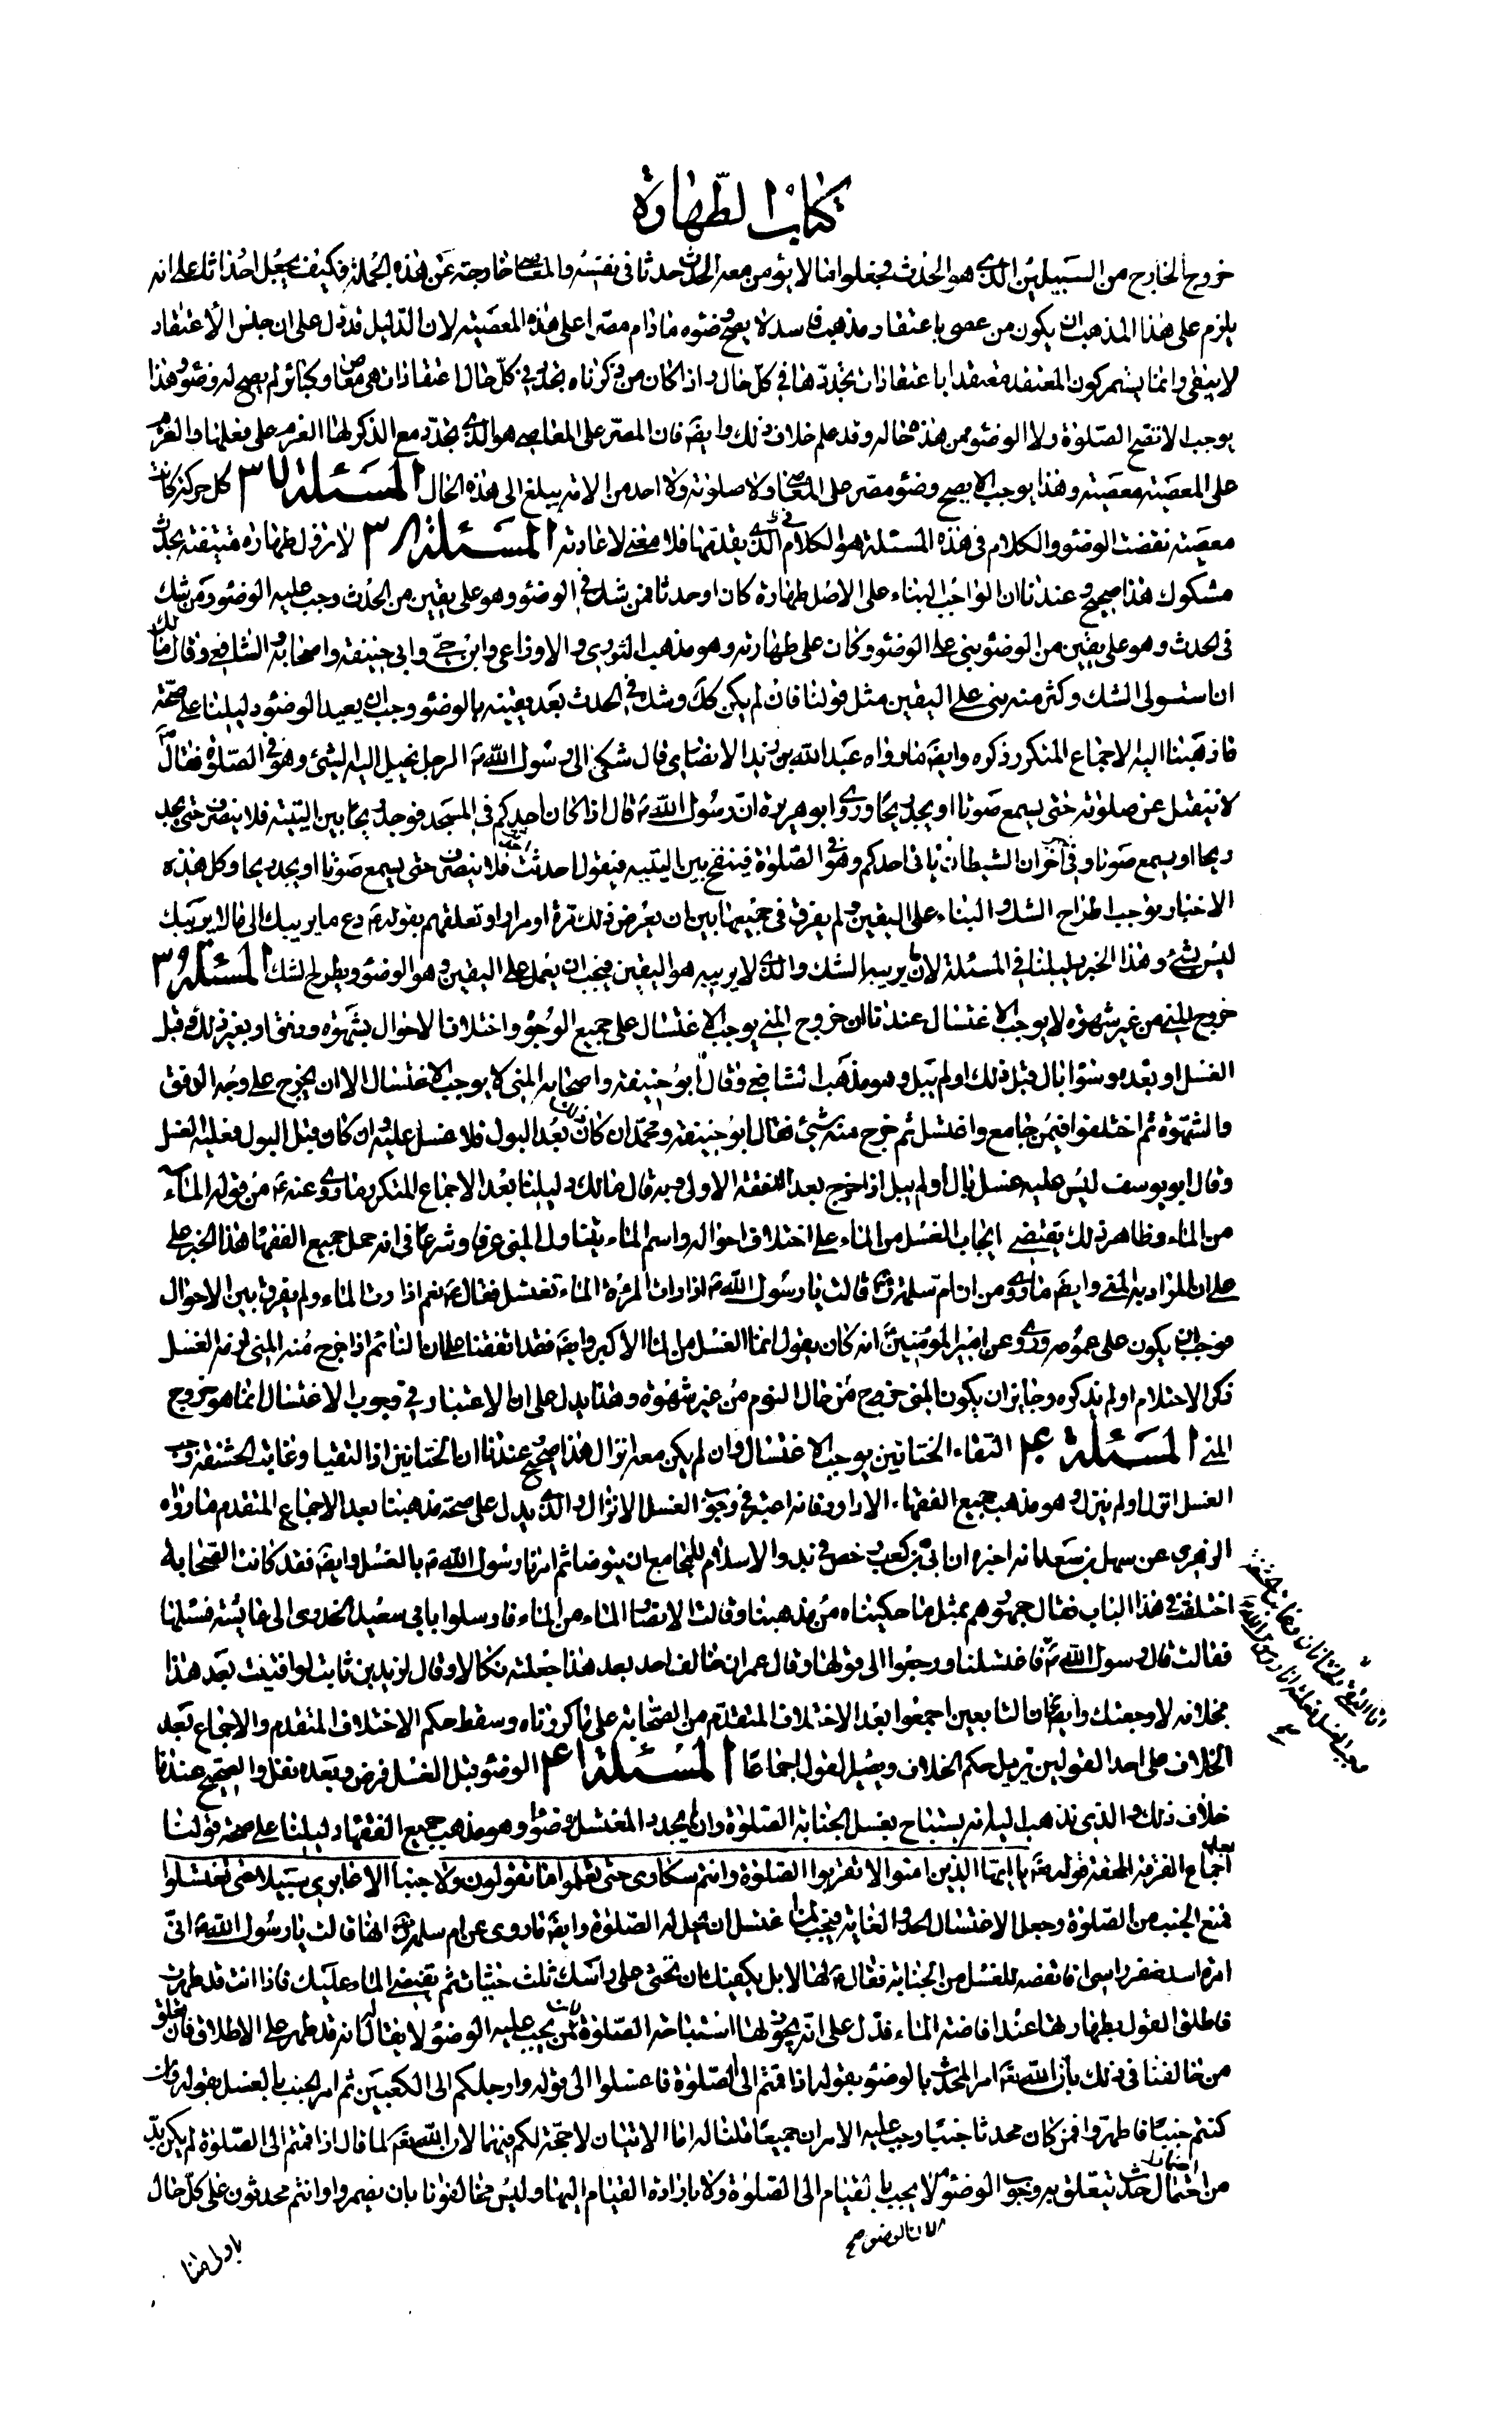 كتاب الطهارة
خروج الخارج من السبيلين الذي هو الحدث وجعلوا ما لا يؤمن معه الحدث حدثا في نفسه والمعاصي خارجة عن هذه الجملة فكيف يجعل احداثا على انه
يلزم على هذا المذهب ان يكون من عصى باعتقاد مذهب فاسد لا يصح وضوئه ما دام مصرا على هذه المعصية لان الدليل قد دل على ان جنس الاعتقاد
لا يبقى وانما يستمر كون المعتقد معتقدا باعتقادات يجددها في كل حال واذا كان من ذكرناه يجدد في كل حال اعتقادات هي معاص وكبائر لم يصح له وضوء وهذا
يوجب الا تصح الصلوة ولا الوضوء ممن هذه حاله وقد علم خلاف ذلك وايضا فان المصر على المعاصي هو الذي يجدد مع الذكر لها العزم على فعلها والعزم
على المعصية معصية وهذا يوجب الا يصح وضوء مصر على المعاصي ولا صلوته ولا احد من الامة يبلغ الى هذه الحال المسئلة ٣٧ كل حركة كانت
معصية نقضت الوضوء والكلام في هذه المسئلة هو الكلام في الذي يقدمها فلا معنى لاعادته المسئلة ٣٨ لا تزول طهارة متيقنة بحدث
مشكوك هذا صحيح وعندنا ان الواجب البناء على الاصل طهارة كان او حدثا فمن شك في الوضوء وهو على يقين من الحدث وجب عليه الوضوء ومن شك
في الحدث وهو على يقين من الوضوء بنى على الوضوء وكان على طهارته وهو مذهب الثوري والاوزاعي وابن حي وابي حنيفة واصحابه والشافعي وقال مالك
ان استولى الشك وكثر منه بنى على اليقين مثل قولنا فان لم يكن كك وشك في الحدث بعد يقينه بالوضوء وجب ان يعيد الوضوء دليلنا على صحة
ما ذهبنا اليه الاجماع المتكرر ذكره وايضا ما رواه عبد الله بن زيد الانصاري قال شكى الى رسول الله ص الرجل يخيل اليه الشئ وهو في الصلوة فقال
لا ينفتل عن صلوته حتى يسمع صوتا او يجد ريحا وروى ابو هريرة ان رسول الله ص قال اذا كان احدكم في المسجد فوجد ريحا بين اليتيه فلا ينصرف حتى يجد
ريحا او يسمع صوتا وفي اخر ان الشيطان ياتي احدكم وهو في الصلوة فينفخ بين اليتيه فيقول احدثت احدثت فلا ينصرف حتى يسمع صوتا او يجد ريحا وكل هذه
الاخبار يوجب اطراح الشك والبناء على اليقين ولم يفرق في جميعها بين ان يعرض ذلك مرة او مرارا وتعلقهم بقوله ع دع ما يريبك الى ما لا يريبك
ليس بشئ وهذا الخبر دليلنا في المسئلة لان ما يريبه الشك والذي لا يريبه هو اليقين فيجب ان يعمل على اليقين وهو الوضوء ويطرح الشك المسئلة ٣٩
خروج المني من غير شهوة لا يوجب الاغتسال عندنا ان خروج المني يوجب الاغتسال على جميع الوجوه واختلاف الاحوال بشهوة ودفق او بغير ذلك وقبل
الغسل او بعده وسواء بال قبل ذلك او لم يبل وهو مذهب الشافعي وقال ابو حنيفة واصحابه المني لا يوجب الاغتسال الا ان يخرج على وجه الدفق
والشهوة ثم اختلفوا فيمن جامع واغتسل ثم خرج منه شئ فقال ابو حنيفة ومحمد ان كان ذلك بعد البول فلا غسل عليه وان كان قبل البول فعليه الغسل
وقال ابو يوسف ليس عليه غسل بال او لم يبل اذا خرج بعد الدفقة الاولى وبه قال مالك دليلنا بعد الاجماع المتكرر ما روى عنه ع من قوله الماء
من الماء وظاهر ذلك يقتضي ايجاب الغسل من الماء على اختلاف احواله واسم الماء يتناول المني عرفا وشرعا في انه حمل جميع الفقهاء هذا الخبر على
على ان المراد به المني وايضا ما روى من ان ام سلمة رض قالت يا رسول الله ص اذا رات المرئة الماء تغتسل فقال ع نعم اذا رات الماء ولم يفرق بين الاحوال
فوجب ان يكون على عمومه وروى عن امير المؤمنين ع انه كان يقول انما الغسل من الماء الاكبر وايضا فقد اتفقنا على ان النائم اذا خرج منه المني لزمه الغسل
ذكر الاحتلام او لم يذكره وجائز ان يكون المني خرج من حال النوم من غير شهوة وهذا يدل على ان الاعتبار في وجوب الاغتسال انما هو بخروج
المني المسئلة ٤٠ التقاء الختانين يوجب الاغتسال وان لم يكن معه انزال هذا صحيح وعندنا ان الختانين اذا التقيا وغابت الحشفة وجب
الغسل انزل او لم ينزل وهو مذهب جميع الفقهاء الا داود فانه اعتبر في وجوب الغسل الانزال والذي يدل على صحة مذهبنا بعد الاجماع المتقدم ما رواه
الزهري عن سهل بن سعد انه اخبره ان ابي بن كعب رخص في بدو الاسلام للمجامع ان يتوضا ثم امرنا رسول الله ص بالغسل وايضا فقد كانت الصحابة
اختلفت في هذا الباب فقال جمهورهم بمثل ما حكيناه من مذهبنا وقالت الانصار الماء من الماء فارسلوا بابي سعيد الخدري الى عائشة فسئلها
فقالت قال رسول الله ص فاغتسلنا ورجعوا الى قولها وقال عمر ان خالف احد بعد هذا جعلته نكالا وقال لزيد بن ثابت لو افتيت بعد هذا
بخلافه لاوجعتك وايضا فان التابعين اجمعوا بعد الاختلاف المتقدم من الصحابة على ما ذكرناه وسقط حكم الاختلاف المتقدم والاجماع بعد
الخلاف على احد القولين يزيل حكم الخلاف ويصير القول اجماعا المسئلة ٤١ الوضوء قبل الغسل فرض وبعده نفل والصحيح عندنا
خلاف ذلك والذي نذهب اليه انه يستباح بغسل الجنابة الصلوة وان لم يجدد المغتسل وضوءا وهو مذهب جميع الفقهاء دليلنا على صحة قولنا
اجماع الفرقة المحقة قوله تعالى يا ايها الذين امنوا لا تقربوا الصلوة وانتم سكارى حتى تعلموا ما تقولون ولا جنبا الا عابري سبيل حتى تغتسلوا
فمنع الجنب من الصلوة وجعل الاغتسال الحد والغاية فيجب لما اغتسل ان يحل له الصلوة وايضا ما روى عن ام سلمة رض انها قالت يا رسول الله ص اني
امرئة اشد ضفر راسي افانقضه للغسل من الجنابة فقال ص لها لا بل يكفيك ان تحثى على راسك ثلث حثيات ثم تفيضي الماء عليك فاذا انت قد طهرت
فاطلق القول بطهارتها عند افاضة الماء فدل على انه يجوز لها استباحة الصلوة لان من يجب عليه الوضوء لا يقال له انه قد طهر على الاطلاق فان تعلق
من خالفنا في ذلك بان الله تعالى امر المحدث بالوضوء بقوله اذا قمتم الى الصلوة فاغسلوا الى قوله وارجلكم الى الكعبين ثم امر الجنب بالغسل بقوله وان
كنتم جنبا فاطهروا فمن كان محدثا جنبا وجب عليه الامران جميعا قلنا له اما الايتان لا حجة لكم فيهما لان الله تعالى لما قال اذا قمتم الى الصلوة لم يكن بد
من اضمار حدث يتعلق به وجوب الوضوء لا يجب بالقيام الى الصلوة ولا بارادة القيام اليها وليس مخالفونا بان يضمروا وانتم محدثون على كل حال
لان الوضوء صح
باولى منا